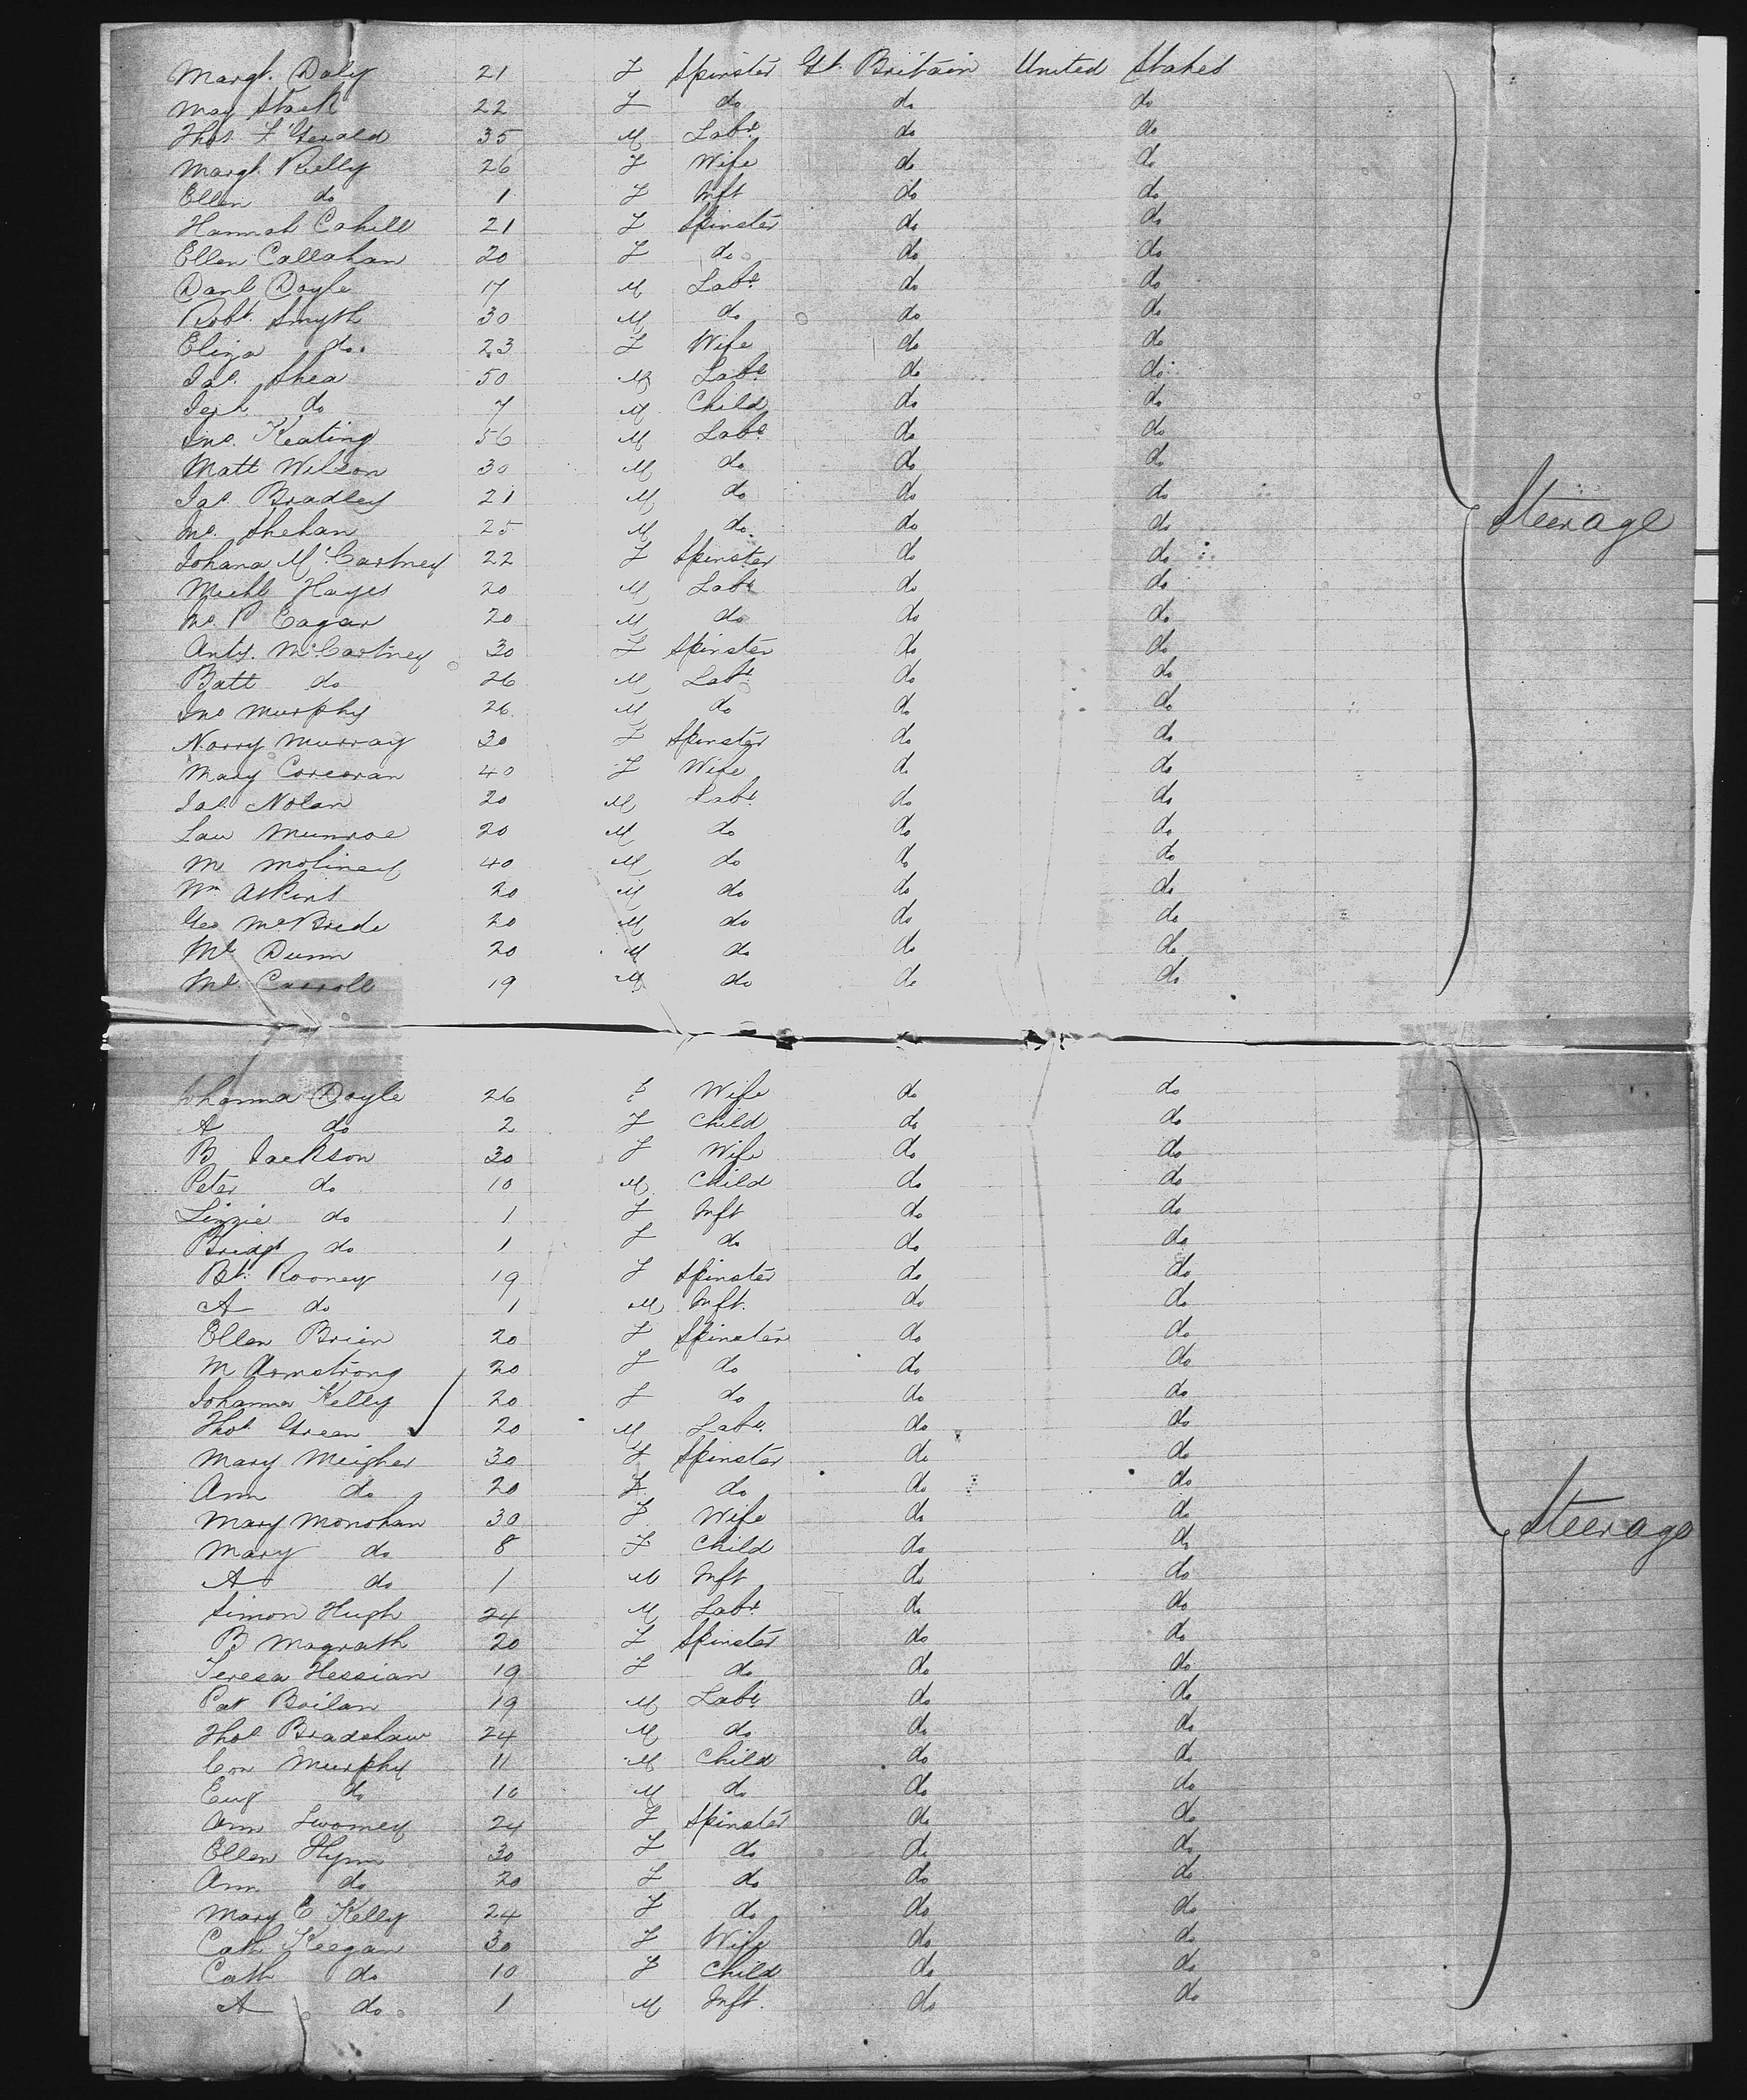 Margt. Daly 21 F Spinster Gt. Britain United States
May Stack 22 F do do do
Thos. F'Gerald 35 M Labr. do do
Margt. Reilly 26 F Wife do do
Ellen do 1 F Inft do do
Hannah Cahill 21 F Spinster do do
Ellen Callahan 20 F do do do
Danl Doyle 17 M Labr. do do
Robt. Smyth 30 M do do do
Eliza do. 23 F Wife do do
Jas. Shea 50 M Labr. do do
Jerh do 7 M Child do do
Jno. Keating 56 M Labr. do do
Matt Wilson 30 M do do do
Jas. Bradley 21 M do do do
Jno. Shehan 25 M do do do Steerage
Johana McCartney 22 F Spinster do do
Michl Hayes 20 M Labr do do
Jno. P Eagar 20 M do do do
Anty. McCartney 30 F Spinster do do
Batt do 26 M Labr do do
Jno Murphy 26 M do do do
Norry Murray 30 F Spinster do do
Mary Corcoran 40 F Wife do do
Jas. Nolan 20 M Labr. do do
Law Munroe 20 M do do do
M Moliney 40 M do do do
Wm Askins 20 M do do do
Geo McBride 20 M do do do
Ml Dunn 20 M do do do
Ml. Carroll 19 M do do do
Johanna Doyle 26 F Wife do do
A do 2 F Child do do
B Jackson 30 F Wife do do
Peter do 10 M Child do do
Linzie do 1 F Inft do do
Bridgt do 1 F do do do
Bt. Rooney 19 F Spinster do do
A do 1 M Inft. do do
Ellen Brien 20 F Spinster do do
M Armstrong 20 F do do do
Johanna Kelly 20 F do do do
Thos. Green 20 M Labr. do do
Mary Meigher 30 F Spinster do do
Ann do 20 F do do do
Mary Monohan 30 F Wife do do Steerage
Mary do 8 F Child do do
A do 1 M Inft do do
Simon Hugh 24 M Labr. do do
B Magrath 20 F Spinster do do
Teresa Hessian 19 F do do do
Pat Boilan 19 M Labr do do
Thos Bradshaw 24 M do do do
Con Murphy 11 M Child do do
Eug do 10 M do do do
Ann Twomey 24 F Spinster do do
Ellen Flynn 30 F do do do
Ann do 20 F do do do
Mary E Kelly 24 F do do do
Cath Keegan 30 F Wife do do
Cath do 10 F Child do do
A do 1 M Inft. do do